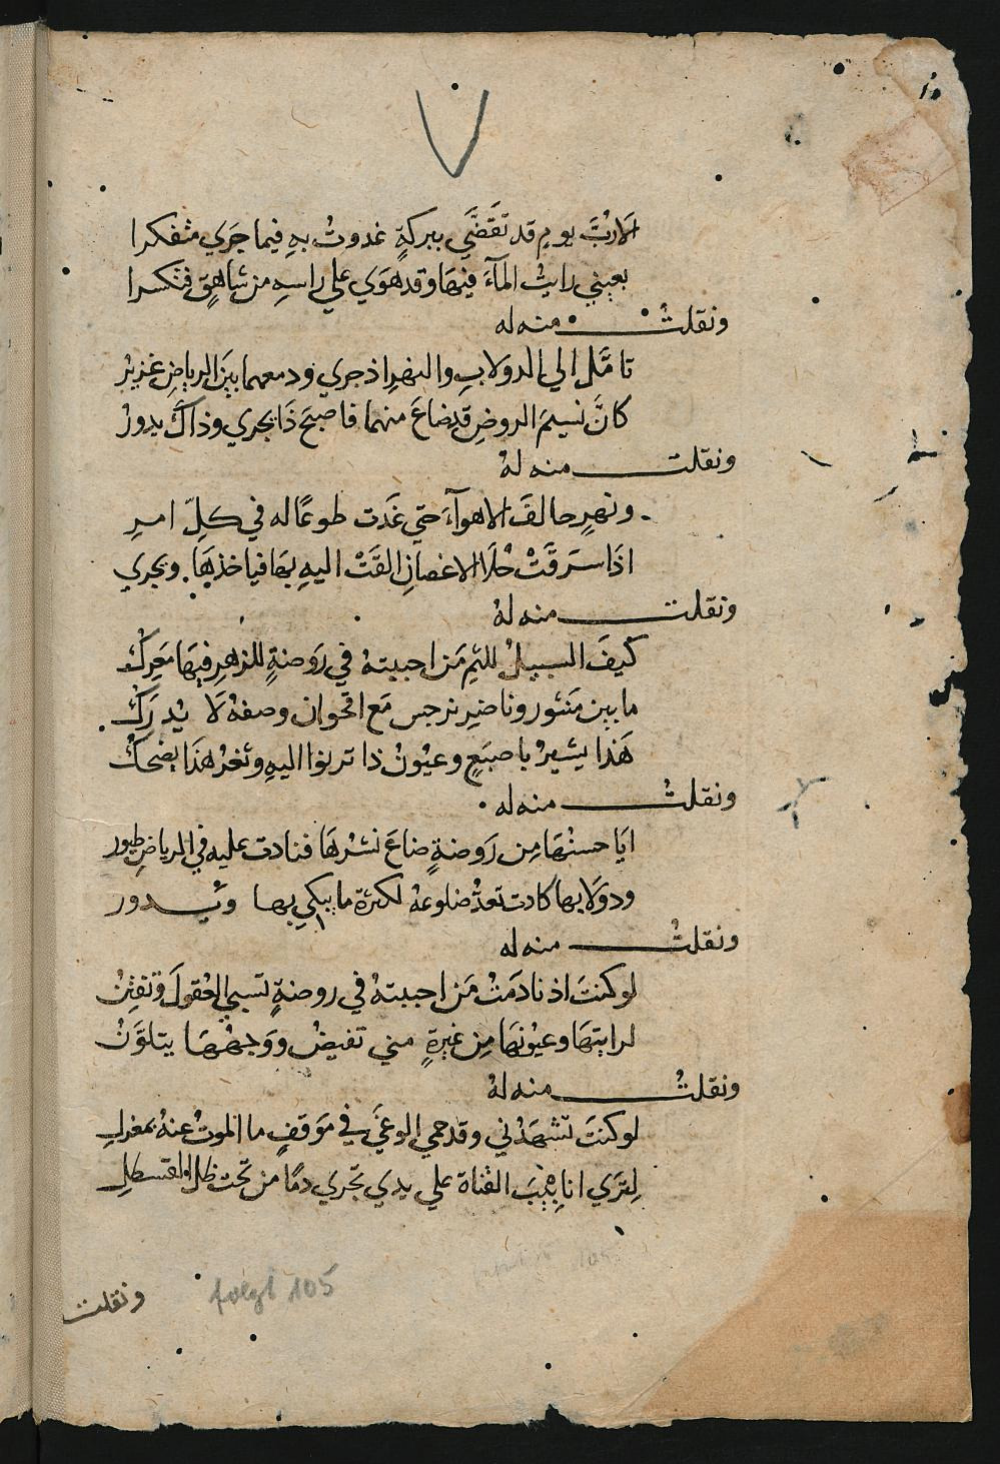 الاربَّ يومٍ قد تَقَضَّي ببركةٍ غدوتُ بهِ فيما جَري متفكرا
بعيني رايتُ المآءَ فيهَا وقد هَوَي علي راسهِ من شاهقٍ فتكسرا
ونقلتُ منه له
تامَّل الي الدولابِ والنهرِ اذ جري ودمعهما بينَ الرياضِ غزيرُ
كانَّ نسيمَ الروضِ قد ضاعَ منهما فاصبحَ ذَا يجري وذاكَ يدورُ
ونقلت منه لهُ
ونهرٍ حالفَ الاهوآءَ حتي غَدت طوعًا له في كلِّ امرِ
اذَا سَرقَتْ حُلَا الاغصانِ القَتْ اليهِ بهَا فياخذهَا. ويجري
ونقلت منه لهُ
كيفَ السبيلُ للثمِ مَن احببتهُ في رَوضةٍ للزهرِ فيهَا مَعركُ
ما بين مَنثور وناضرِ نرجس مَع اقحوان وصفهُ لَا يُدرَكُ
هَذا يشيرُ باصبَعٍ وعيُونُ ذا ترنوا اليهِ وثغرُ هذَا يضحَكُ
ونقلتُ منه له
ايَا حسنهَا مِن رَوضةٍ ضاعَ نشرهَا فنادت عليه في الرياضِ طيور
ودولَابها كادت تعدُّ ضلوعهُ لكثرة ما يبكي بها ويدور
ونقلتُ منه له
لو كنتَ اذ نادَمتُ مَن احببتهُ في روضةٍ تسبي العُقولَ وتفتِنُ
لرايتهَا وعيُونهَا مِن غيرةٍ مني تفيضُ وَوَجههَا يتلَوَّنُ
ونقلتُ منه لهُ
لو كنتَ تشهَدُني وقد حمي الوغيَ في مَوقفٍ ما الموتُ عنهُ بمعزلِ
لِتَرَي انابِيبَ القناة علي يدي تجري دمًا من تحت ظل القسطلِ
folgt 105
ونقلت